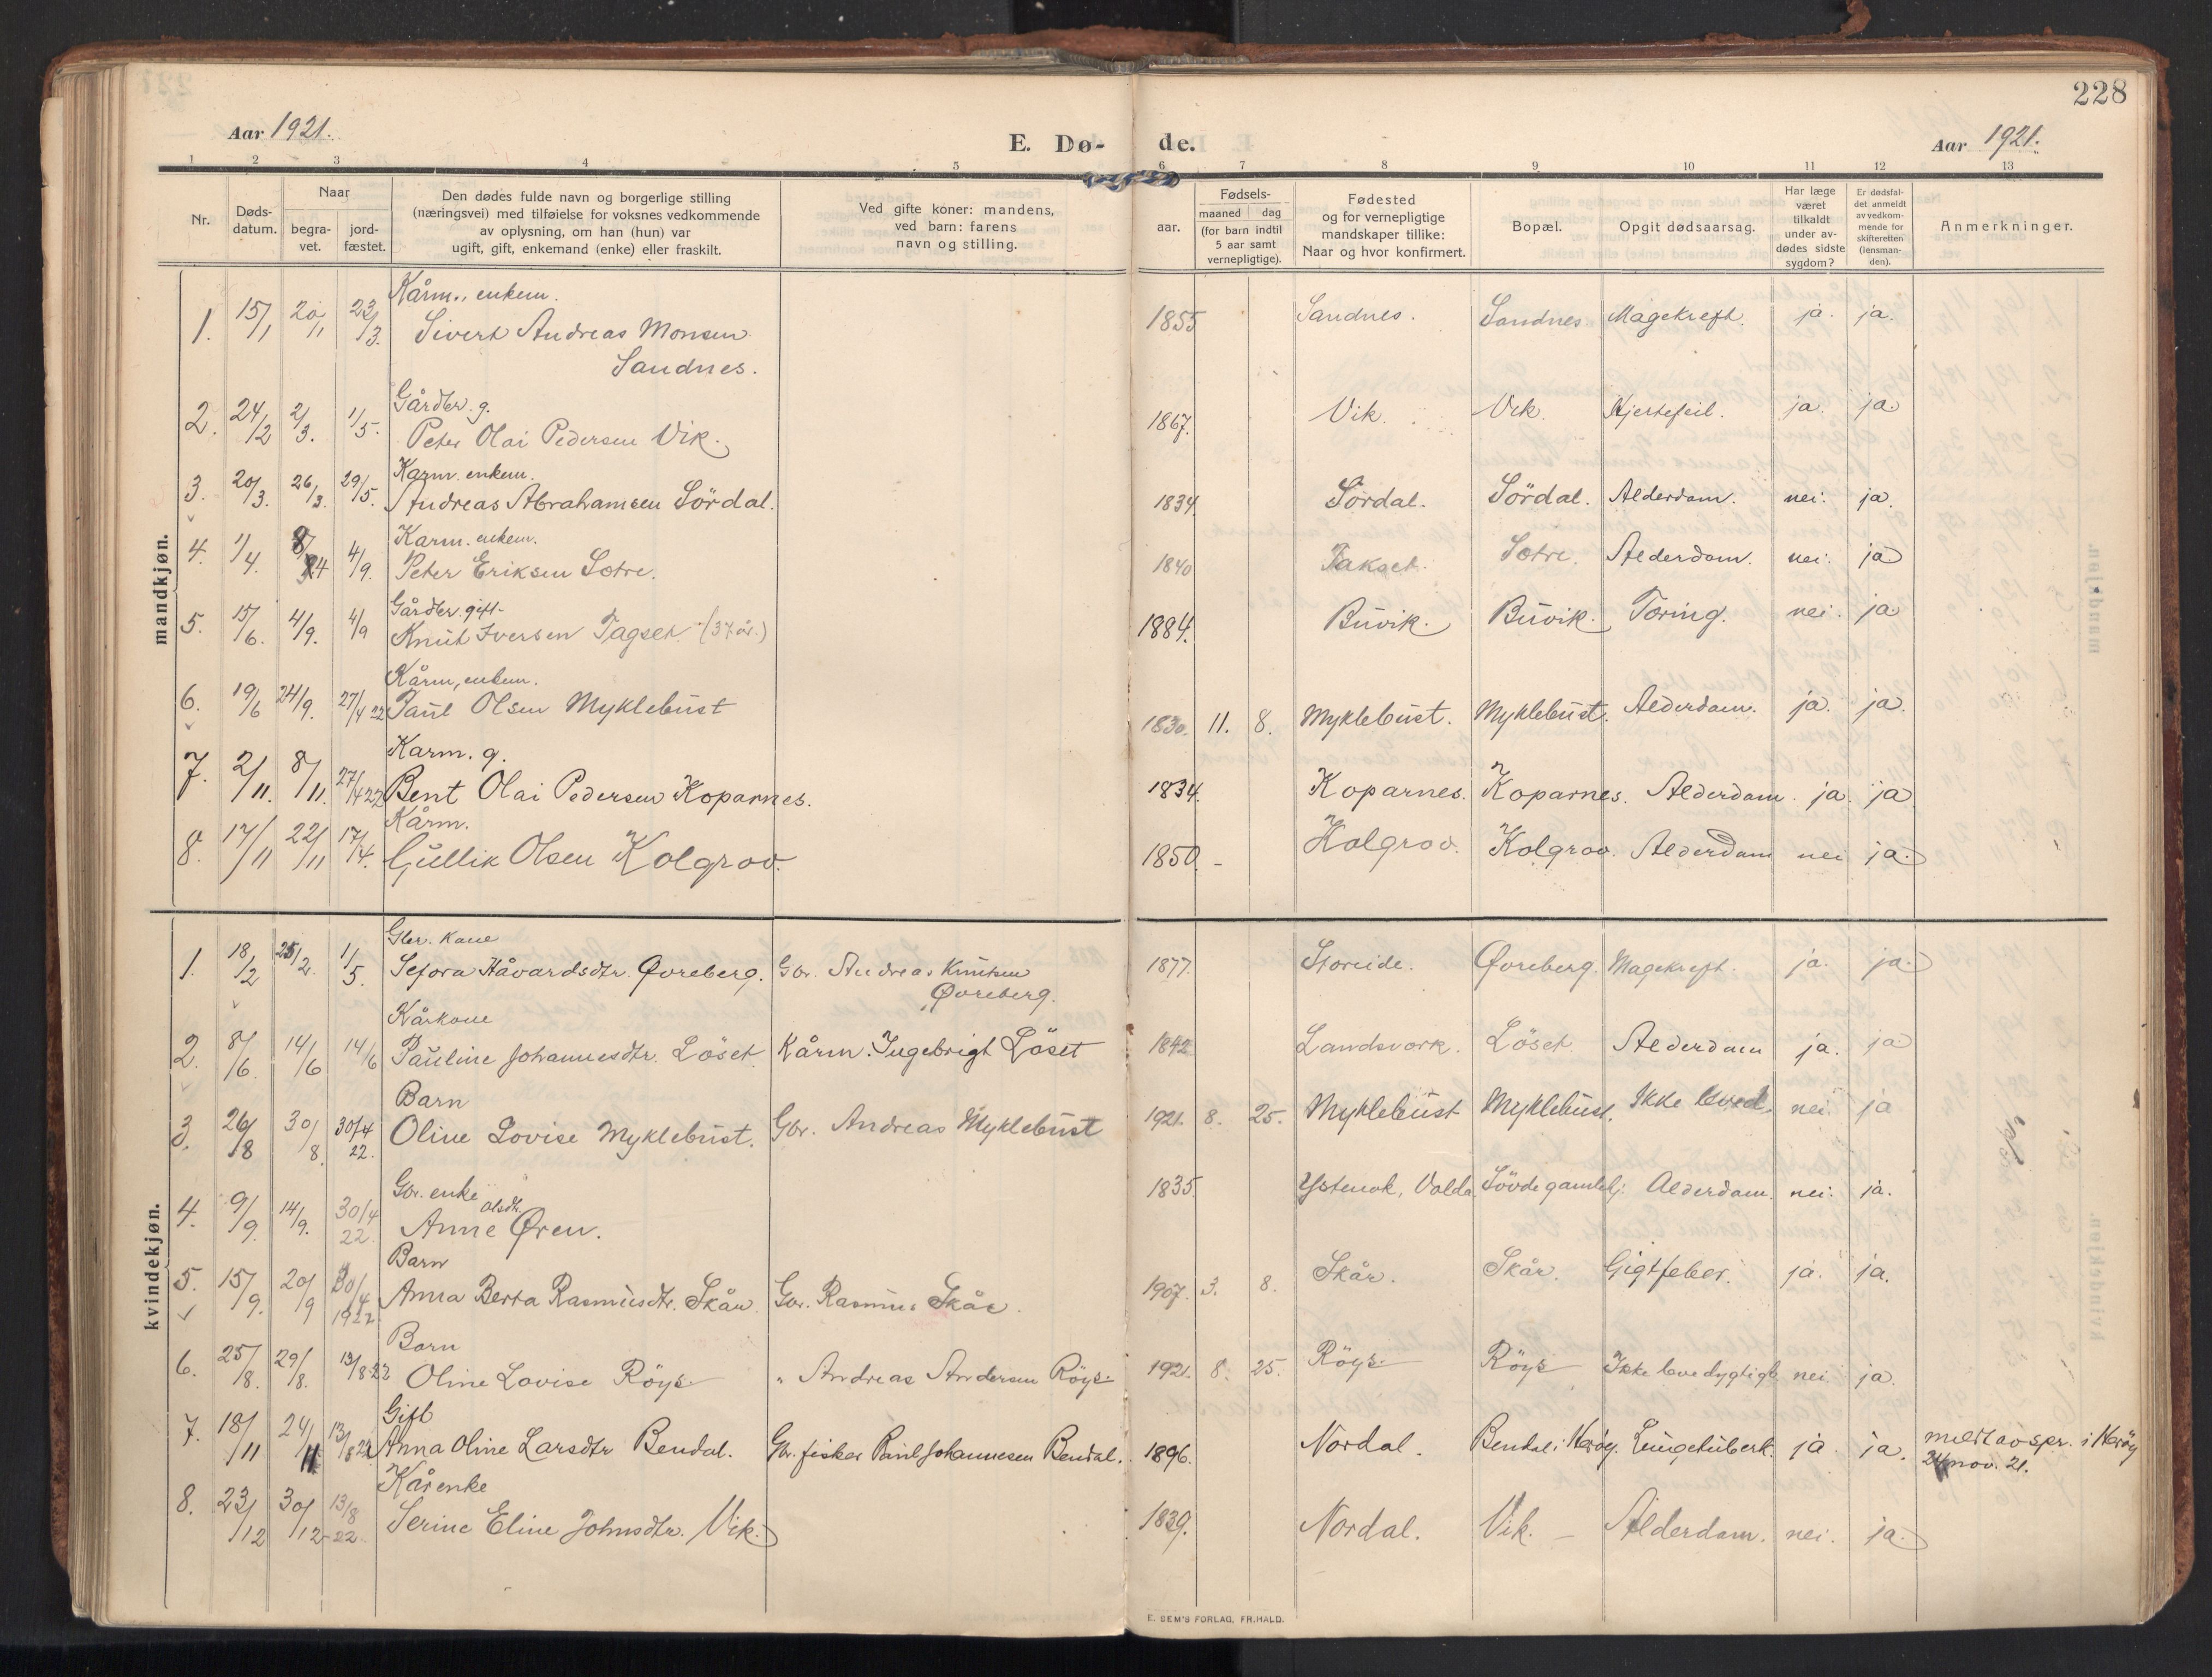 228
Aar 1921.
E. Dø-
de.
Aar 1921.
1 2 3 4 5 6 7 8 9 10 11 12 13
Nr.
Døds-
datum.
Naar
begra-
vet.
jord-
fæstet.
Den dødes fulde navn og borgerlige stilling
(næringsvei) med tilføielse for voksnes vedkommende
av oplysning, om han (hun) var
ugift, gift, enkemand (enke) eller fraskilt.
Ved gifte koner: mandens,
ved barn: farens
navn og stilling.
Fødsels-
aar.
maaned dag
(for barn indtil
5 aar samt
vernepligtige).
Fødested
og for vernepligtige
mandskaper tillike:
Naar og hvor konfirmert.
Bopæl.
Opgit dødsaarsag.
Har læge
været
tilkaldt
under av-
dødes sidste
sygdom?
Er dødsfal-
det anmeldt
av vedkom-
mende for
skifteretten
(lensman-
den).
Anmerkninger.
mandkjøn.
Kårm., enkem.
1. 15/1 20/1 23/3. Sivert Andreas Monsen 1855 Sandnes. Sandnes. Magekreft. ja. ja.
Sandnes.
Gårdbr. g.
2. 24/2 2/3. 1/5. Peter Olai Pedersen Vik. 1867. Vik. Vik. Hjertefeil. ja. ja.
Karm. enkem.
3. 20/3. 26/3. 29/5. Andreas Abrahamsen Sördal. 1834. Sördal. Sördal. Alderdom. nei. ja.
Karm. enkem.
4. 1/4. 8/4 4/9. Peter Eriksen Sætre. 1840 Takset. Sætre. Alderdom. nei. ja
Gårdbr. gift
5. 15/6. 4/9. 4/9 Knut Iversen Tagset. (37 år.) 1884. Buvik. Buvik. Tæring. nei. ja
Kårm, enkem.
6. 19/6 24/9. 27/4 22 Paul Olsen Myklebust 1830. 11. 8. Myklebust. Myklebust. Alderdom. ja. ja.
Karm. g.
7. 2/11. 8/11. 27/4 22 Bent Olai Pedersen Koparnes. 1834. Koparnes. Koparnes. Alderdom. ja. ja
Kårm.
8. 17/11 22/11 17/4. Gullik Olsen Kolgrov. 1850. - Kolgrov. Kolgrov. Alderdom nei ja.
kvindekjøn.
Gbr. kone
1. 18/2 25/2. 1/5. Sefora Håvardsdtr. Øvreberg. Gbr. Andreas Knutsen 1877. Storeide. Øvreberg. Magekreft. ja. ja.
Øvreberg.
Kårkone
2. 8/6. 14/6 14/6 Pauline Johannesdtr. Löset. Kårm. Ingebrigt Löset 1842 Landsverk. Löset Alderdom ja. ja
Barn
3. 26/8 30/8. 30/4 22. Oline Lovise Myklebust. Gbr. Andreas Myklebust 1921. 8. 25. Myklebust Myklebust. Ikke leved. nei. ja
Gbr. enke
Olsdtr.
4. 9/9. 14/9. 30/4 22. Anne Øren. 1835. Ystenok, Volda. Sövde gamlehj. Alderdom. nei. ja.
Barn
5. 15/9. 20/9 30/4 1922 Anna Berta Rasmusdtr. Skår. Gbr. Rasmus Skår. 1907. 3. 8. Skår. Skår. Gigtfeber. ja. ja.
Barn
6. 25/8. 29/8. 13/8 22 Oline Lovise Röys " Andreas Andersen Röys. 1921. 8. 25. Röys. Röys Ikke levedygtigt nei. ja.
Gift
7. 18/11 24/11 13/8 22 Anna Oline Larsdtr Bendal. Gbr. fisker Paul Johannesen Bendal. 1896. Nordal. Bendal i Herøy. Lungetuberk. ja. ja. meld av spr. i Herøy
24 nov. 21.
Kårenke
8. 23/12 30/12 13/8 22. Serine Eline Johnsdtr. Vik. 1839. Nordal. Vik. - Alderdom. nei. ja.
E. SEM'S FORLAG, FR.HALD.